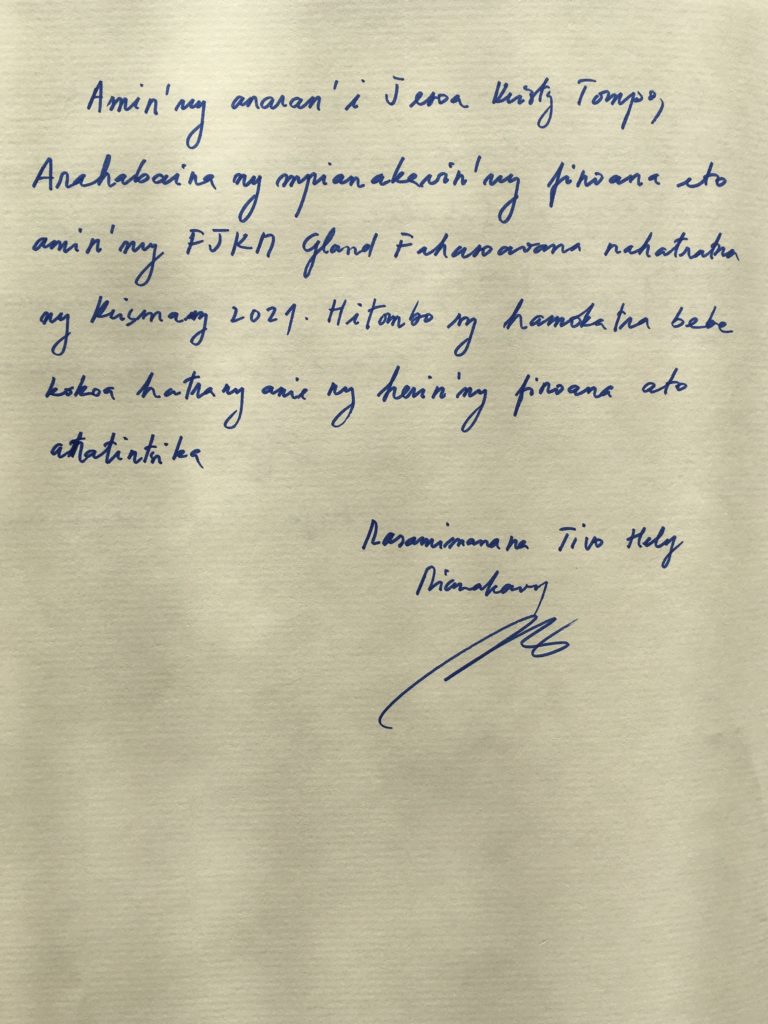 Amin'ny anaran'i Jesoa Kristy Tompo,
Arahabaina ny mpianakavin'ny finoana eto
amin'ny FJKM Gland Fahasoavana nahatratra
ny Krismasy 2021. Hitombo sy hamokatra bebe
kokoa hatrany anie ny herin'ny finoana ato
anatintsika
Rasamimanana Tivo Hely
Mianakavy